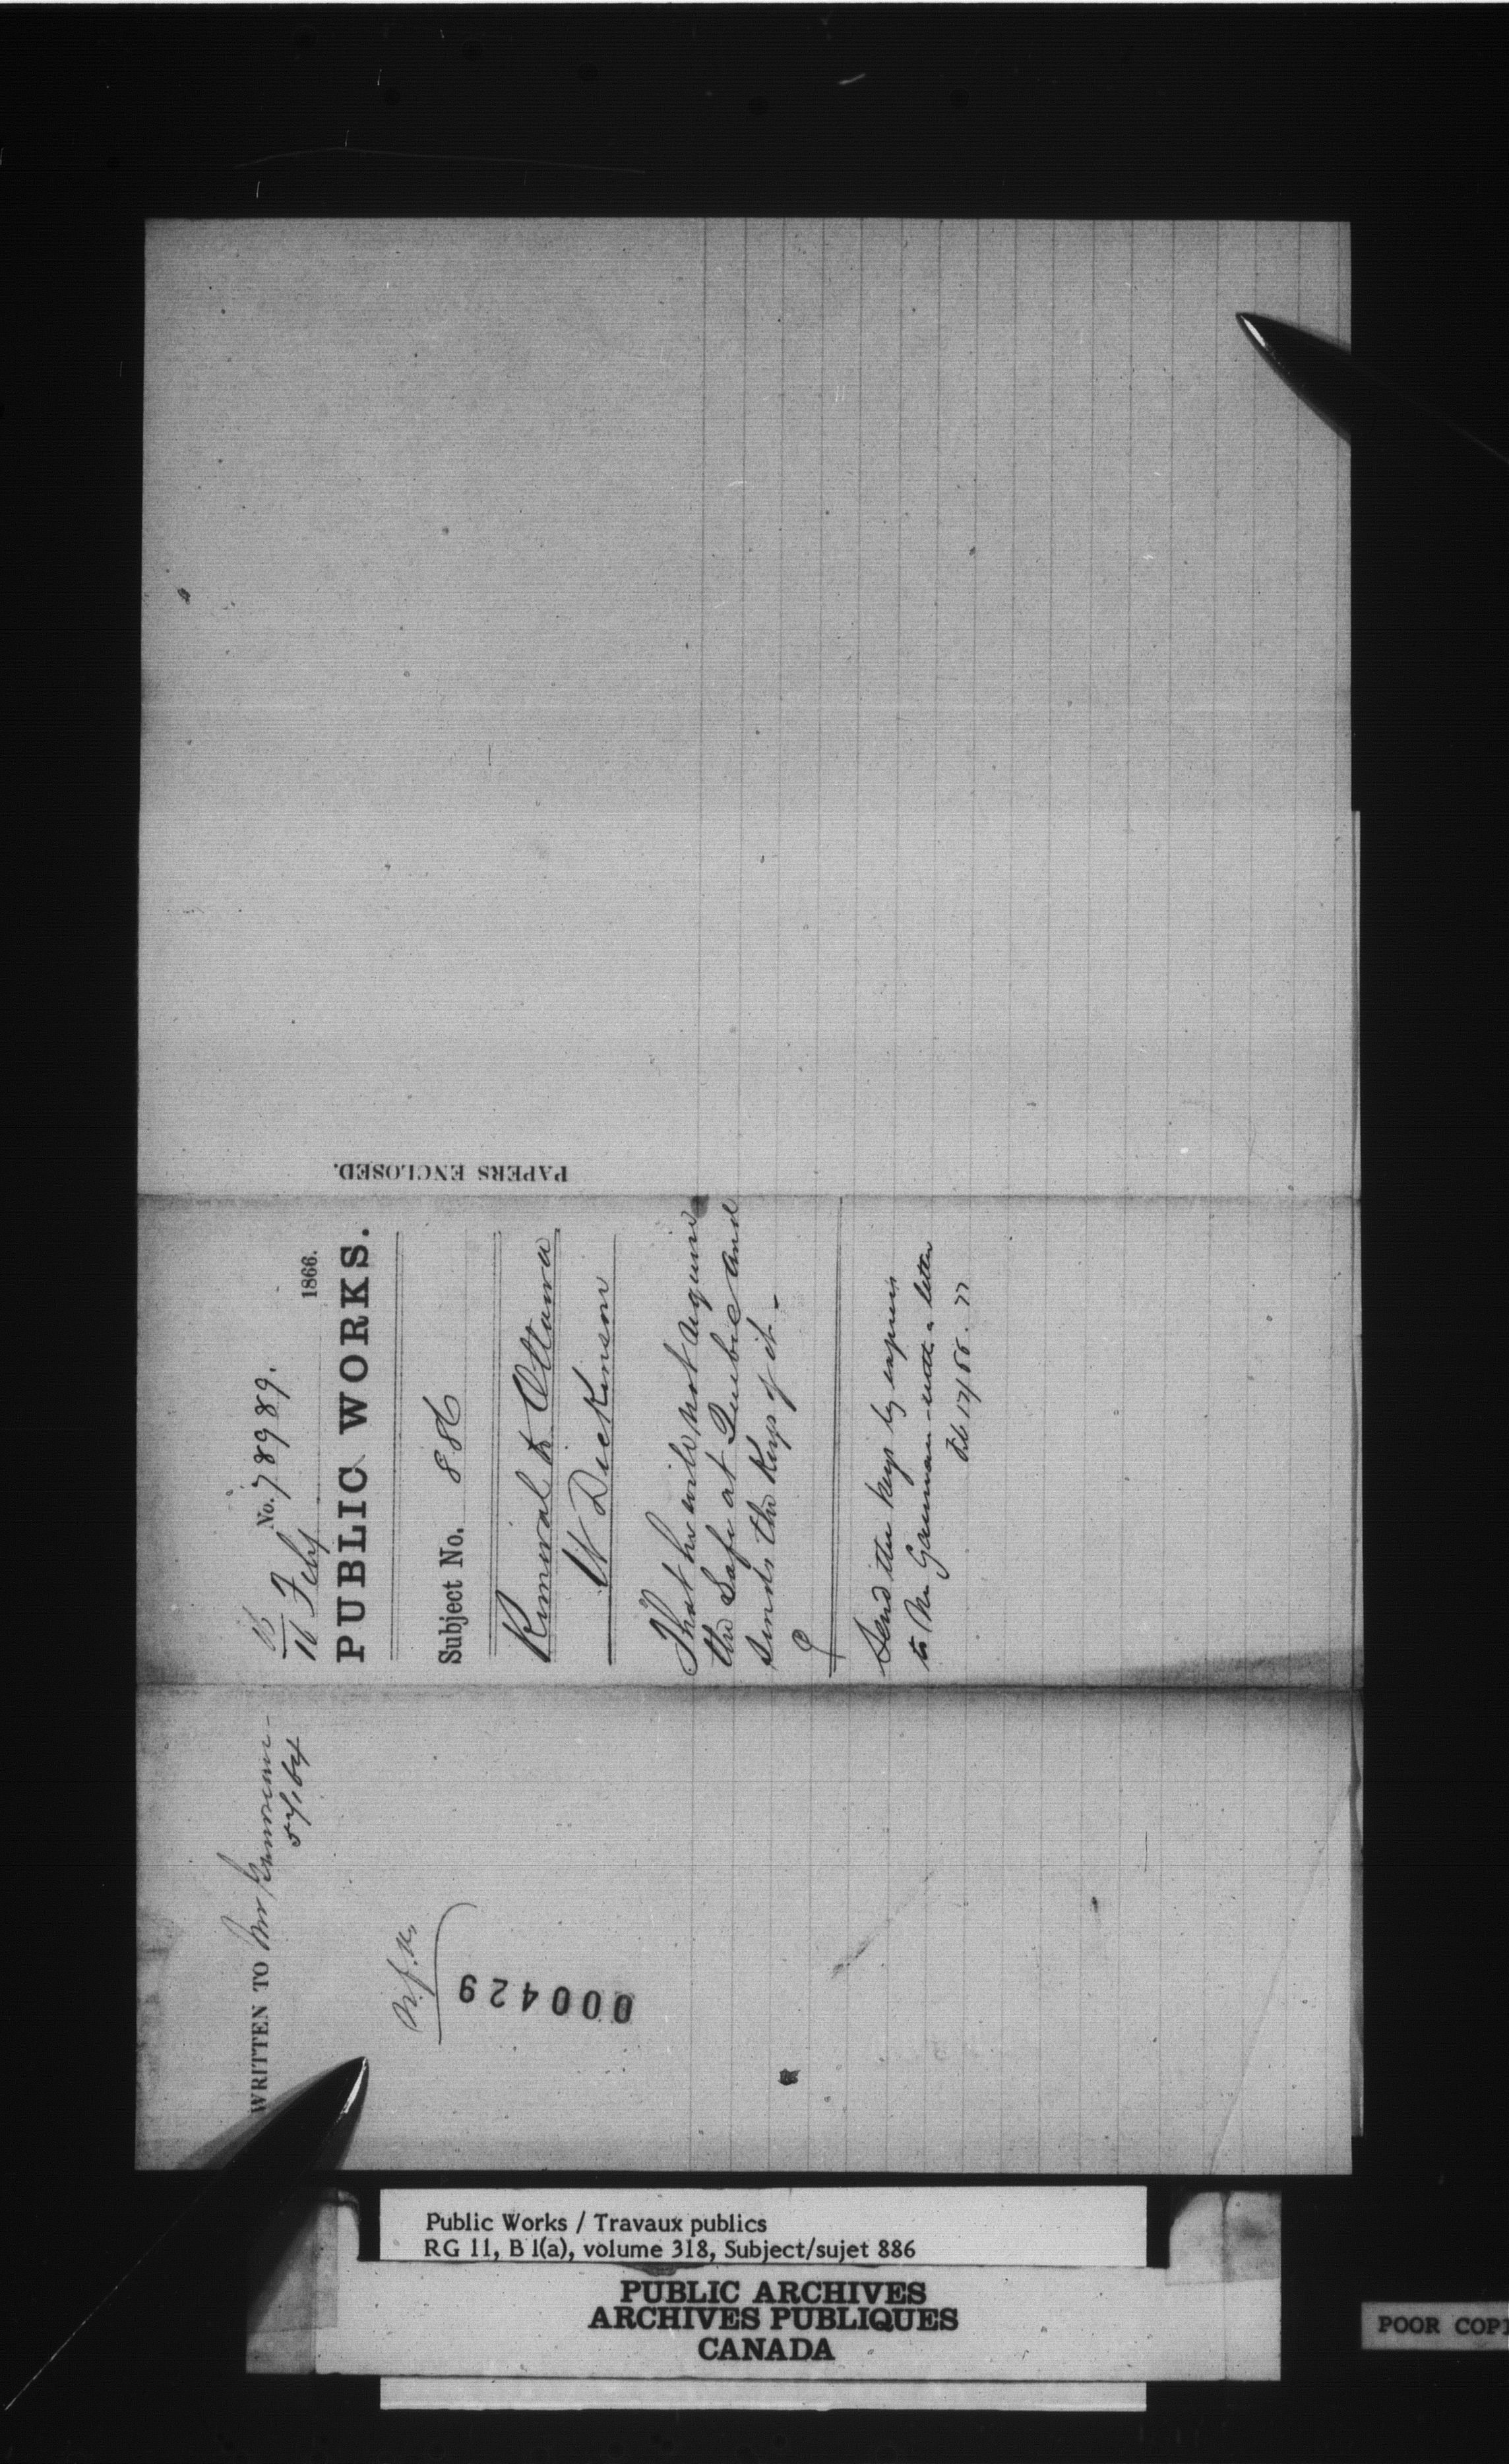 No. 78989.
16 Feby 1866.
PUBLIC WORKS.
Subject No. 886
Removal to Ottawa
W Dickinson
That he will not require
the Safe at Quebec and
sends the Keys of it -
Send the keys by express
to Mr Gauvreau - with a letter
Feb 17/66.
PAPERS ENCLOSED.
WRITTEN TO Mr
000429
Public Works / Travaux publics
RG 11, B 1(a), volume 318, Subject/sujet 886
PUBLIC ARCHIVES
ARCHIVES PUBLIQUES
CANADA
POOR COPI